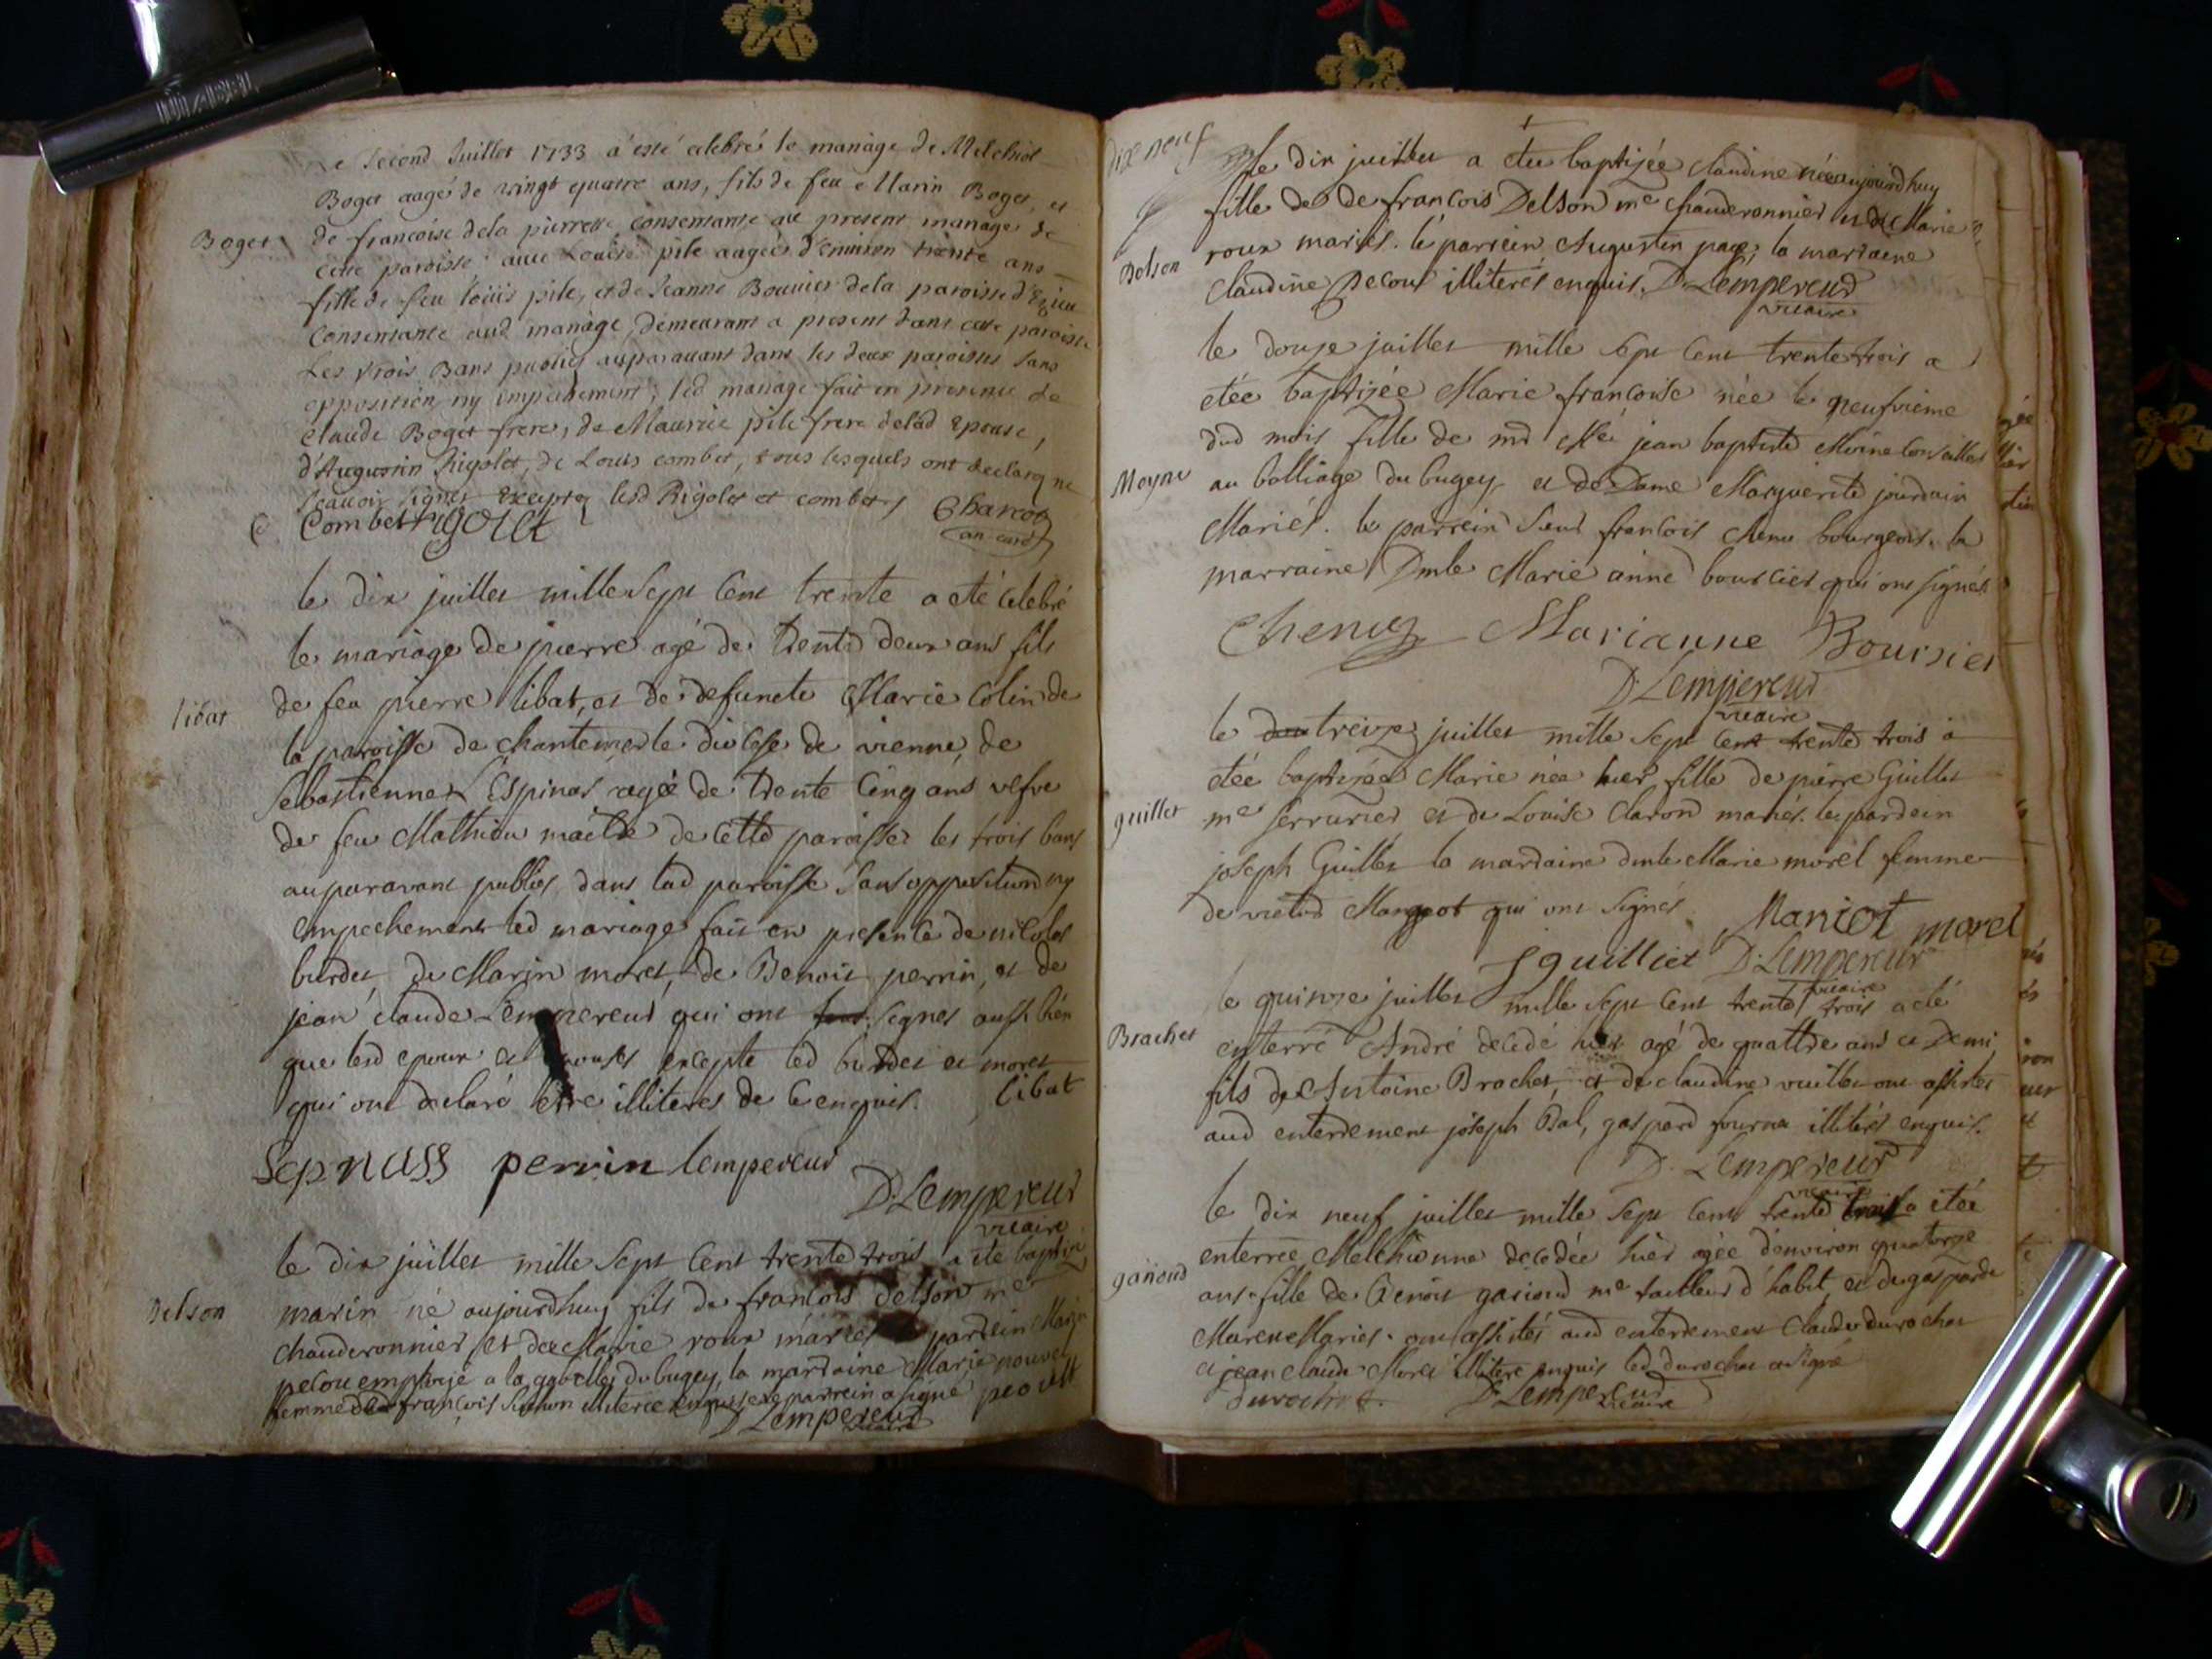 Le Second Juillet 1733 a esté celebré le mariage de Melchiol
Boget aagé de vingt quatre ans, fils de feu Marin Boget, et
Boget
de francoise dela pierrette consentante au present mariage de
cette paroisse avec Louise pile aagée d'environ trente ans
fille de feu loüis pile, et de Jeanne Bouvier dela paroisse d'Ezieu
Consentante aud mariage, demeurant a present dans cette paroisse
Les trois Bans publiés auparauant dans les deux paroisses sans
opposition ny empechement; led mariage fait en presence de
claude Boget frere, de Maurice pile frere delad Epouse,
d'Augustin Rigolet, de Louis combet, tous lesquels ont declaré ne
scauoir signer Excepté lesd Rigolet et combet
Combet Rigolet Charcot
curé
le dix juillet mille sept cent trente a eté celebré
le mariage de pierre agé de trente deux ans fils
libat
de feu pierre libat, et de defuncte Marie Colin de
la paroisse de chantemerle diocese de vienne, de
sebastienne L'Espinas agée de trente cinq ans vefve
de feu Mathieu maitre de cette paroisse les trois bans
auparavant publiés dans lad paroisse sans opposition ny
empechement led mariage fait en presence de nicolas
burdet, de Marin moret, de Benoit perrin, et de
jean claude Lempereur qui ont signes aussi bien
que lesd epoux et epouses excepte led burdet et moret
qui ont declaré être illiteres de ce enquis. libat
Lepnass perrin lempereur
D. Lempereur
vicaire
le dix juillet mille sept cent trente trois a eté baptisé
Delson
marin né aujourdhuy fils de francois delson me
chauderonnier et de Marie roux mariés parrein Marin
pecou employé a la gabelles du bugey, la marraine Marie
femme francois illiterée le parrein a signé
D Lempereur
vicaire
dix neuf
le dix juillet a etee baptisée claudine née aujourdhuy
fille de de francois Delson me chauderonnier et de Marie
Delson
roux mariés. le parrein Augustin page, la marraine
Claudine Decoux illiterés enquis. D. Lempereur
vicaire
le douze juillet mille sept cent trente trois a
etée baptisée Marie francoise née le neufvieme
dud mois fille de jean baptiste Moine Conseiller
Moyne
au balliage du bugey et de Dame Marguerite jourdain
Mariés. le parrein Sieur francois chenu bourgeois. la
marraine Dmle Marie anne boursier qui ont signés
Chenu Marianne Boursier
D. Lempereur
vicaire
le treize juillet mille sept cent trente trois a
etée baptisée Marie née hier fille de pierre Guillet
guillet
me serrurier et de Louise Claron mariés. le parrein
joseph Guillet la marraine dmle Marie morel femme
de victor Margeot qui ont signés. Mariot morel
J guilliet D. Lempereur
vicaire
le quinze juillet mille sept cent trente trois a eté
Brachet
enterré André decedé hier agé de quattre ans et Demi
fils de Antoine Brachet, et de claudine vuillet ont assistes
aud enterrement joseph Bal, gaspard fournier illiterés enquis.
D. Lempereur
vicaire
le dix neuf juillet mille sept cent trente trois a etée
enterrée Melchionne decedée hier agée d'environ quatorze
ganioud
ans fille de Benoit me tailleur d'habit, et de gasparde
Mariés. ont assistés aud enterrement Claude durochat
et jean claude Moret illitere enquis led durochat a signé
durochat. D. Lempereur
vicaire